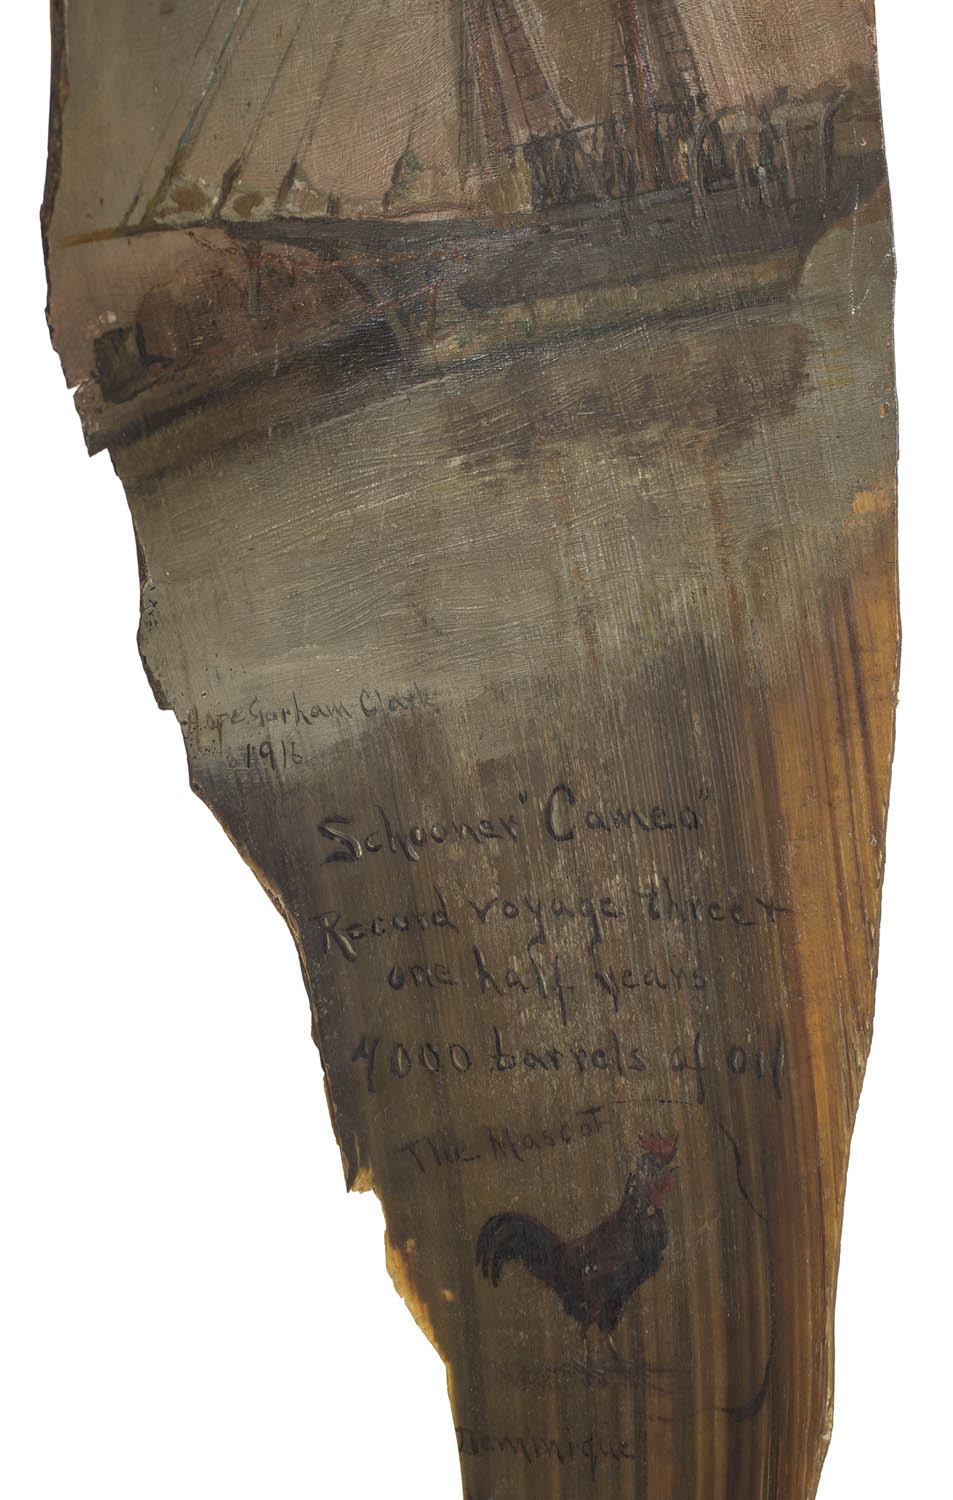 Hope Gorham Clark
1916
Schooner "Cameo"
Record voyage three +
one half years
4000 barrels of oil
The Mascot
Dominique